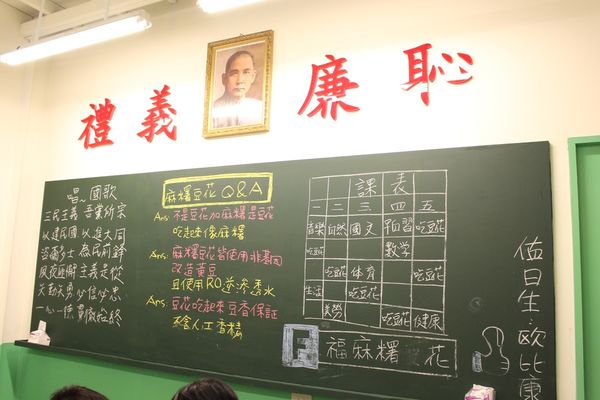 禮義廉恥
唱~國歌
三民主義 吾黨所宗
以建民國 以進大同
咨爾多士 為民前鋒
夙夜匪懈 主義是從
矢勤矢勇 必信必忠
一心一德 貫徹始終
麻糬豆花Q&A
Ans: 不是豆花加麻糬是豆花
吃起來像麻糬
Ans: 麻糬豆花皆使用非基因
改造黃豆
且使用RO逆滲透水
Ans: 豆花吃起來豆香保証
不含人工香精
課表
一 二 三 四 五
音樂 自然 國文 預習 吃豆花
吃豆花 數學
吃豆花 體育 吃豆花
生活 吃豆花
美勞 吃豆花 健康
福麻糬 花
值日生:歐比康